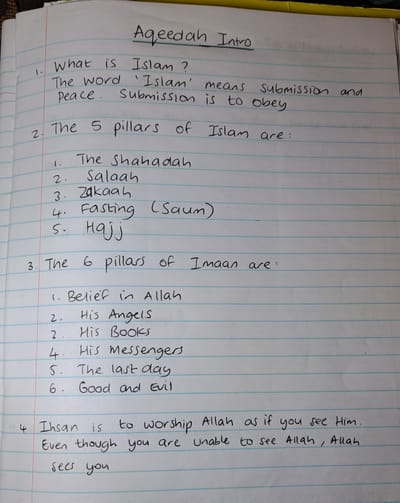 Aqeedah Intro
1. What is Islam?
The word 'Islam' means submission and
Peace. Submission is to obey
2. The 5 pillars of Islam are:
1. The Shahadah
2. Salaah
3. Zakaah
4. Fasting (Saum)
5. Hajj
3 The 6 pillars of Imaan are:
1. Belief in Allah
2. His Angels
3. His Books
4. His Messengers
5. The last day
6. Good and Evil
4 Ihsan is to worship Allah as if you see Him.
Even though you are unable to see Allah, Allah
sees you